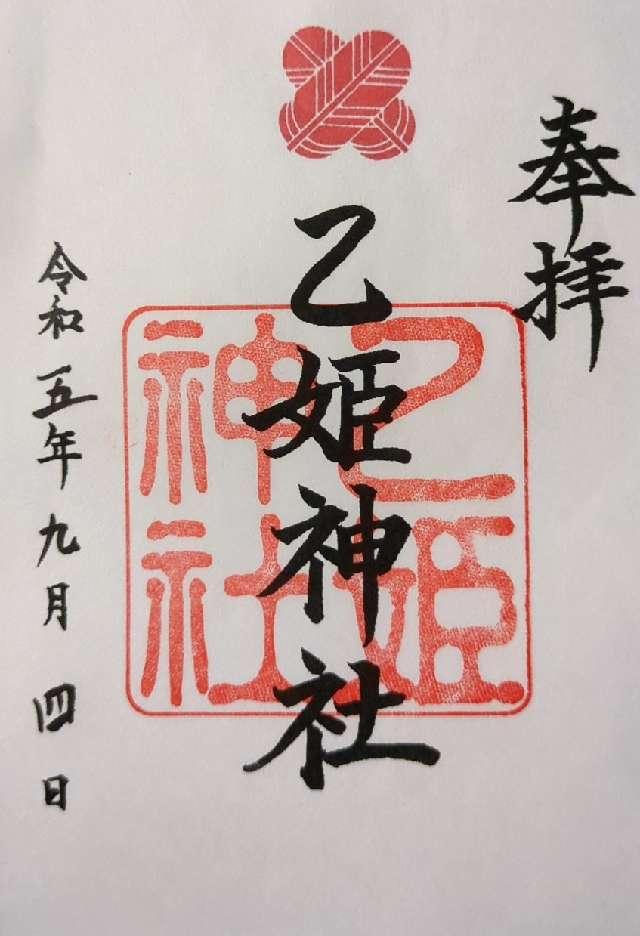 奉拝
乙姫神社
乙姫
神社
令和五年九月四日